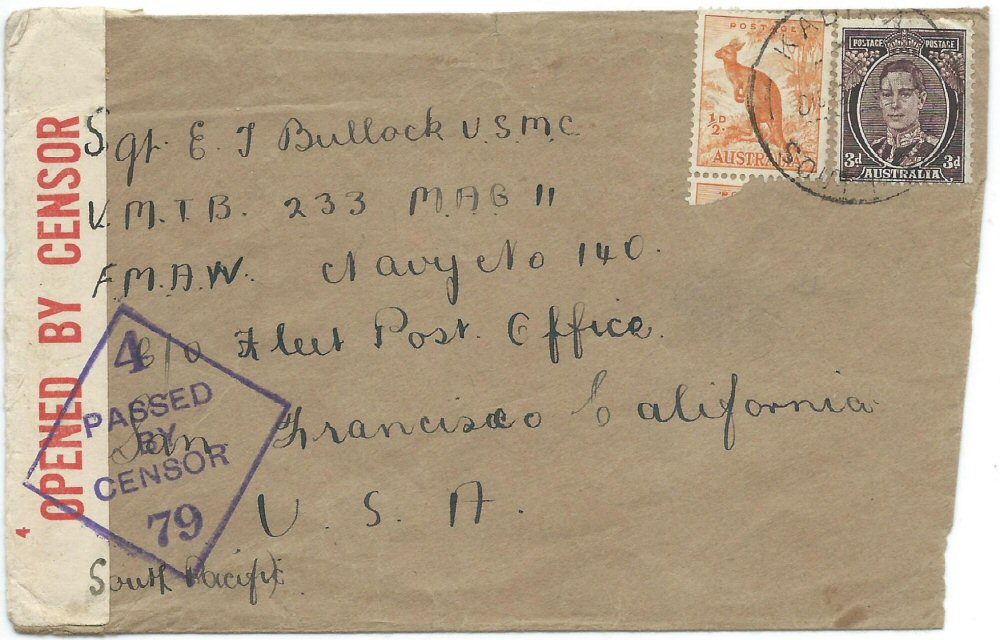 OPENED BY CENSOR
4
POSTAGE
½D
AUSTRALIA
POSTAGE POSTAGE
3d 3d
AUSTRALIA
KADINA
Sgt. E J Bullock U S M C
V.M.T.B. 233 M A G 11
F.M.A.W. Navy No 140.
c/o Fleet Post. Office.
San Francisco California
U. S. A.
South Pacific
4
PASSED
BY
CENSOR
79